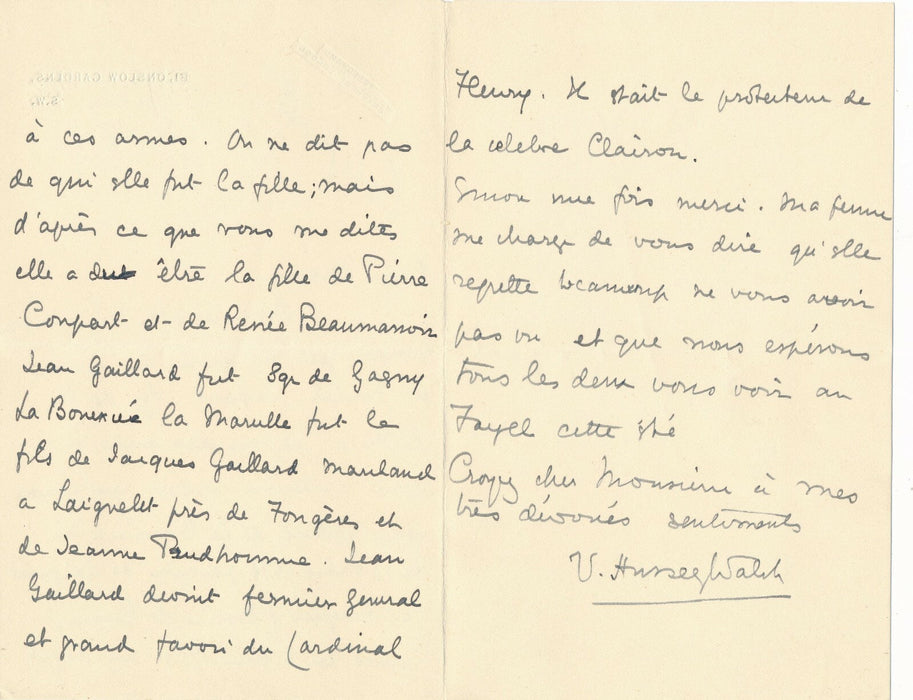 61, ONSLOW GARDENS,
S.W.
à ces armes. On ne dit pas
de qui elle fut la fille; mais
d'après ce que vous me dites
elle a dut être la fille de Pierre
Compart et de Renée Beaumanoir
Jean Gaillard fut Sgr de Gagny
La Bonexué la Marulle fut le
fils de Jacques Gaillard marchand
a Laignelet près de Fougères et
de Jeanne Prudhomme. Jean
Gaillard devint fermier general
et grand favori du Cardinal
Fleury. Il était le protecteur de
la celebre Clairon.
Encor une fois merci. Ma femme
me charge de vous dire qu'elle
regrette beaucoup ne vous avoir
pas vu et que nous espérons
tous les deux vous voir au
Fayel cette été
Croyez cher Monsieur à mes
très dévoués sentiments
V. Hussey Walsh